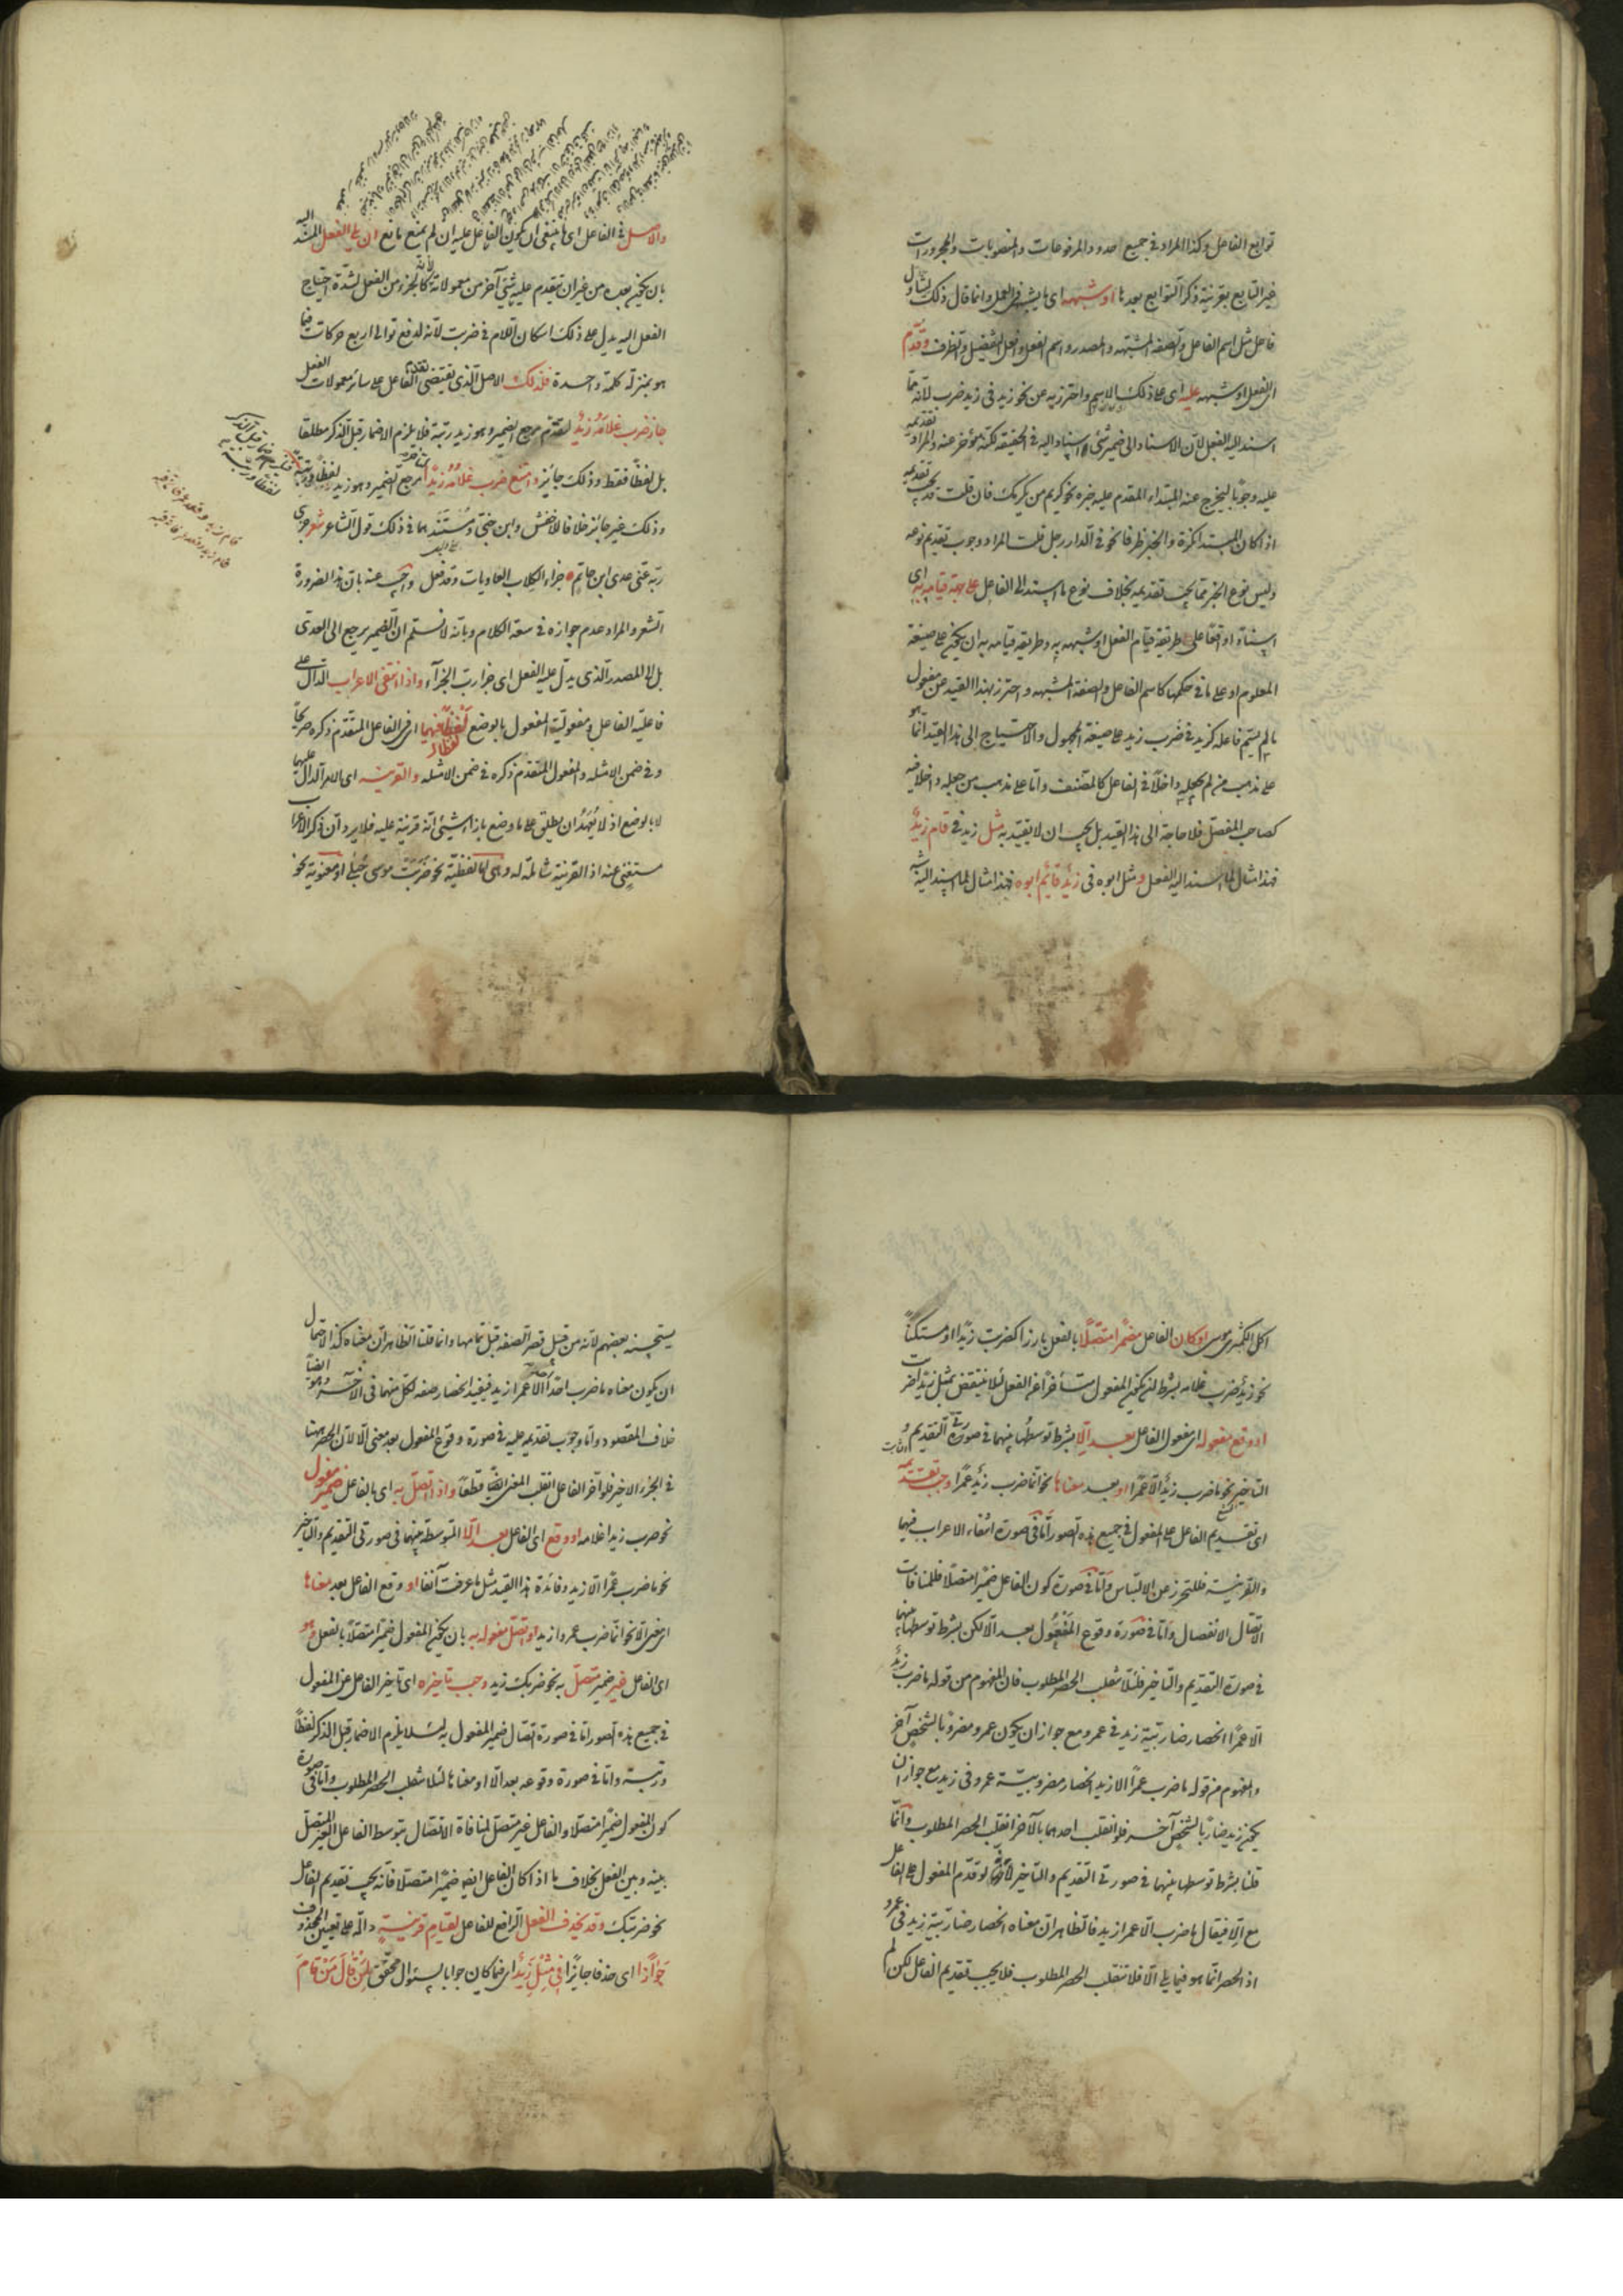 توابع الفاعل وكذا المراد في جميع حدود المرفوعات والمنصوبات والمجرورات
غير التابع بقرينة ذكر التوابع بعدها او شبهه اى ما يشبهه فى العمل وانما قال ذلك ليتناول
فاعل مثل اسم الفاعل والصفة المشبهة والمصدر واسم الفعل وافعل التفضيل والظرف وقدم
اى الفعل او شبهه عليه اى على ذلك الاسم واحترز به عن نحو زيد فى زيد ضرب لانه مما
اسند اليه الفعل لان الاسناد الى ضمير شئ اسناد اليه فى الحقيقة لكنه مؤخر عنه والمراد تقديمه
عليه وجوبا ليخرج عنه المبتداء المقدم عليه خبره نحو كريم من يكرمك فان قلت قد يجب تقديمه
اذا كان المبتدا نكرة والخبر ظرفا نحو فى الدار رجل قلت المراد وجوب تقديم نوعه
وليس نوع الخبر مما يجب تقديمه بخلاف نوع ما اسند الى الفاعل على جهة قيامه به اى
اسنادا واقعا على طريقة قيام الفعل او شبهه به وطريقة قيامه به ان يكون على صيغة
المعلوم او على ما فى حكمها كاسم الفاعل والصفة المشبهة واحترز بهذا القيد عن مفعول
ما لم يسم فاعله كزيد فى ضرب زيد على صيغة المجهول والاحتياج الى هذا القيد انما هو
على مذهب من لم يجعله داخلا فى الفاعل كالمصنف واما على مذهب من جعله داخلا فيه
كصاحب المفصل فلا حاجة الى هذا القيد بل يجب ان لا يقيد به مثل زيد فى قام زيد
فهذا مثال لما اسند اليه الفعل ومثل ابوه فى زيد قائم ابوه فهذا مثال لما اسند اليه شبه
والاصل فى الفاعل اى ما ينبغى ان يكون الفاعل عليه ان لم يمنع مانع ان يلى الفعل المسند اليه
بان يكون بعده من غير ان يتقدم عليه شئ آخر من معمولاته لانه كالجزء من الفعل لشدة احتياج
الفعل اليه يدل على ذلك اسكان اللام فى ضربت لانه لدفع توالى اربع حركات فيما
هو بمنزلة كلمة واحدة فلذلك الاصل الذى يقتضى تقدم الفاعل على سائر معمولات الفعل
جاز ضرب غلامه زيد لتقدم مرجع الضمير وهو زيد رتبة فلا يلزم الاضمار قبل الذكر مطلقا
بل لفظا فقط وذلك جائز وامتنع ضرب غلامه زيدا لتأخر مرجع الضمير وهو زيد لفظا ورتبة
وذلك غير جائز خلافا للاخفش وابن جنى ومستندهما فى ذلك قول الشاعر شعر جزى
ربه عنى عدى ابن حاتم جزاء الكلاب العاويات وقد فعل واجيب عنه بان هذا لضرورة
الشعر والمراد عدم جوازه فى سعة الكلام وبانه لا نسلم ان الضمير يرجع الى العدى
بل الى المصدر الذى يدل عليه الفعل اى جزا رب الجزآء واذا انتفى الاعراب الدال على
فاعلية الفاعل ومفعولية المفعول بالوضع لفظا فيهما اى فى الفاعل المتقدم ذكره صريحا
وفى ضمن الامثلة والمفعول المتقدم ذكره فى ضمن الامثلة والقرينة اى الامر الدال عليهما
لا بالوضع اذ لا يعهد ان يطلق على ما وضع بازاء شئ انه قرينة عليه فلا يرد ان ذكر الاعراب
مستغنى عنه اذ القرينة شاملة له وهى اما لفظية نحو ضربت موسى حبلى او معنوية نحو
اكل الكمثرى موسى او كان الفاعل مضمرا متصلا بالفعل بارزا كضربت زيدا او مستكنا
نحو زيد ضرب غلامه بشرط ان يكون المفعول متأخرا عن الفعل لئلا ينتقض بمثل زيدا ضربت
او وقع مفعوله اى مفعول الفاعل بعد الا بشرط توسطها بينهما فى صورتى التقديم و
التاخير نحو ما ضرب زيد الا عمرا او بعد معناها نحو انما ضرب زيد عمرا وجب تقديمه
اى تقديم الفاعل على المفعول فى جميع هذه الصور اما فى صورة انتفاء الاعراب فيهما
والقرينة فللتحرز عن الالتباس واما فى صورة كون الفاعل ضميرا متصلا فلمنافات
الاتصال الانفصال واما فى صورة وقوع المفعول بعد الا لكن بشرط توسطها بينهما
فى صورة التقديم والتاخير فلئلا ينقلب الحصر المطلوب فان المفهوم من قوله ما ضرب زيد
الا عمرا انحصار ضاربية زيد فى عمرو مع جواز ان يكون عمرو مضروبا لشخص آخر
والمفهوم من قوله ما ضرب عمرا الا زيد انحصار مضروبية عمرو فى زيد مع جواز ان
يكون زيد ضاربا لشخص آخر فلو انقلب احدهما بالآخر انقلب الحصر المطلوب وانما
قلنا بشرط توسطها بينهما فى صورتى التقديم والتاخير لانه لو قدم المفعول على الفاعل
مع الا فيقال ما ضرب الا عمرا زيد فالظاهر ان معناه انحصار ضاربية زيد فى عمرو
اذ الحصر انما هو فيما يلى الا فلا ينقلب الحصر المطلوب فلا يجب تقديم الفاعل لكن لم
يستحسنه بعضهم لانه من قبيل قصر الصفة قبل تمامها وانما قلنا الظاهر ان معناه كذا لاحتمال
ان يكون معناه ما ضرب احد احدا الا عمرا زيد فيفيد انحصار صفة كل منهما فى الآخر وهو ايضا
خلاف المقصود واما وجوب تقديمه عليه فى صورة وقوع المفعول بعد معنى الا لان الحصر ههنا
فى الجزء الاخير فلو اخر الفاعل انقلب المعنى ايضا قطعا واذا اتصل به اى بالفاعل ضمير مفعول
نحو ضرب زيدا غلامه او وقع اى الفاعل بعد الا المتوسطة بينهما فى صورتى التقديم والتاخير
نحو ما ضرب عمرا الا زيد وفائدة هذا القيد مثل ما عرفت آنفا او وقع الفاعل بعد معناها
اى معنى الا نحو انما ضرب عمروا زيد او اتصل مفعوله به بان يكون المفعول ضميرا متصلا بالفعل وهو
اى الفاعل غير ضمير متصل به نحو ضربك زيد وجب تاخيره اى تاخير الفاعل عن المفعول
فى جميع هذه الصور اما فى صورة اتصال ضمير المفعول به لئلا يلزم الاضمار قبل الذكر لفظا
ورتبة واما فى صورة وقوعه بعد الا او معناها لئلا ينقلب الحصر المطلوب واما فى صورة
كون المفعول ضميرا متصلا والفاعل غير متصل لمنافاة الاتصال بتوسط الفاعل الغير المتصل
بينه وبين الفعل بخلاف ما اذا كان الفاعل ايضا ضميرا متصلا فانه يجب تقديم الفاعل
نحو ضربتك وقد يحذف الفعل الرافع للفاعل لقيام قرينة دالة على تعيين المحذوف
جوازا اى حذفا جائزا فى مثل زيد اى فيما كان جوابا لسؤال محقق لمن قال من قام